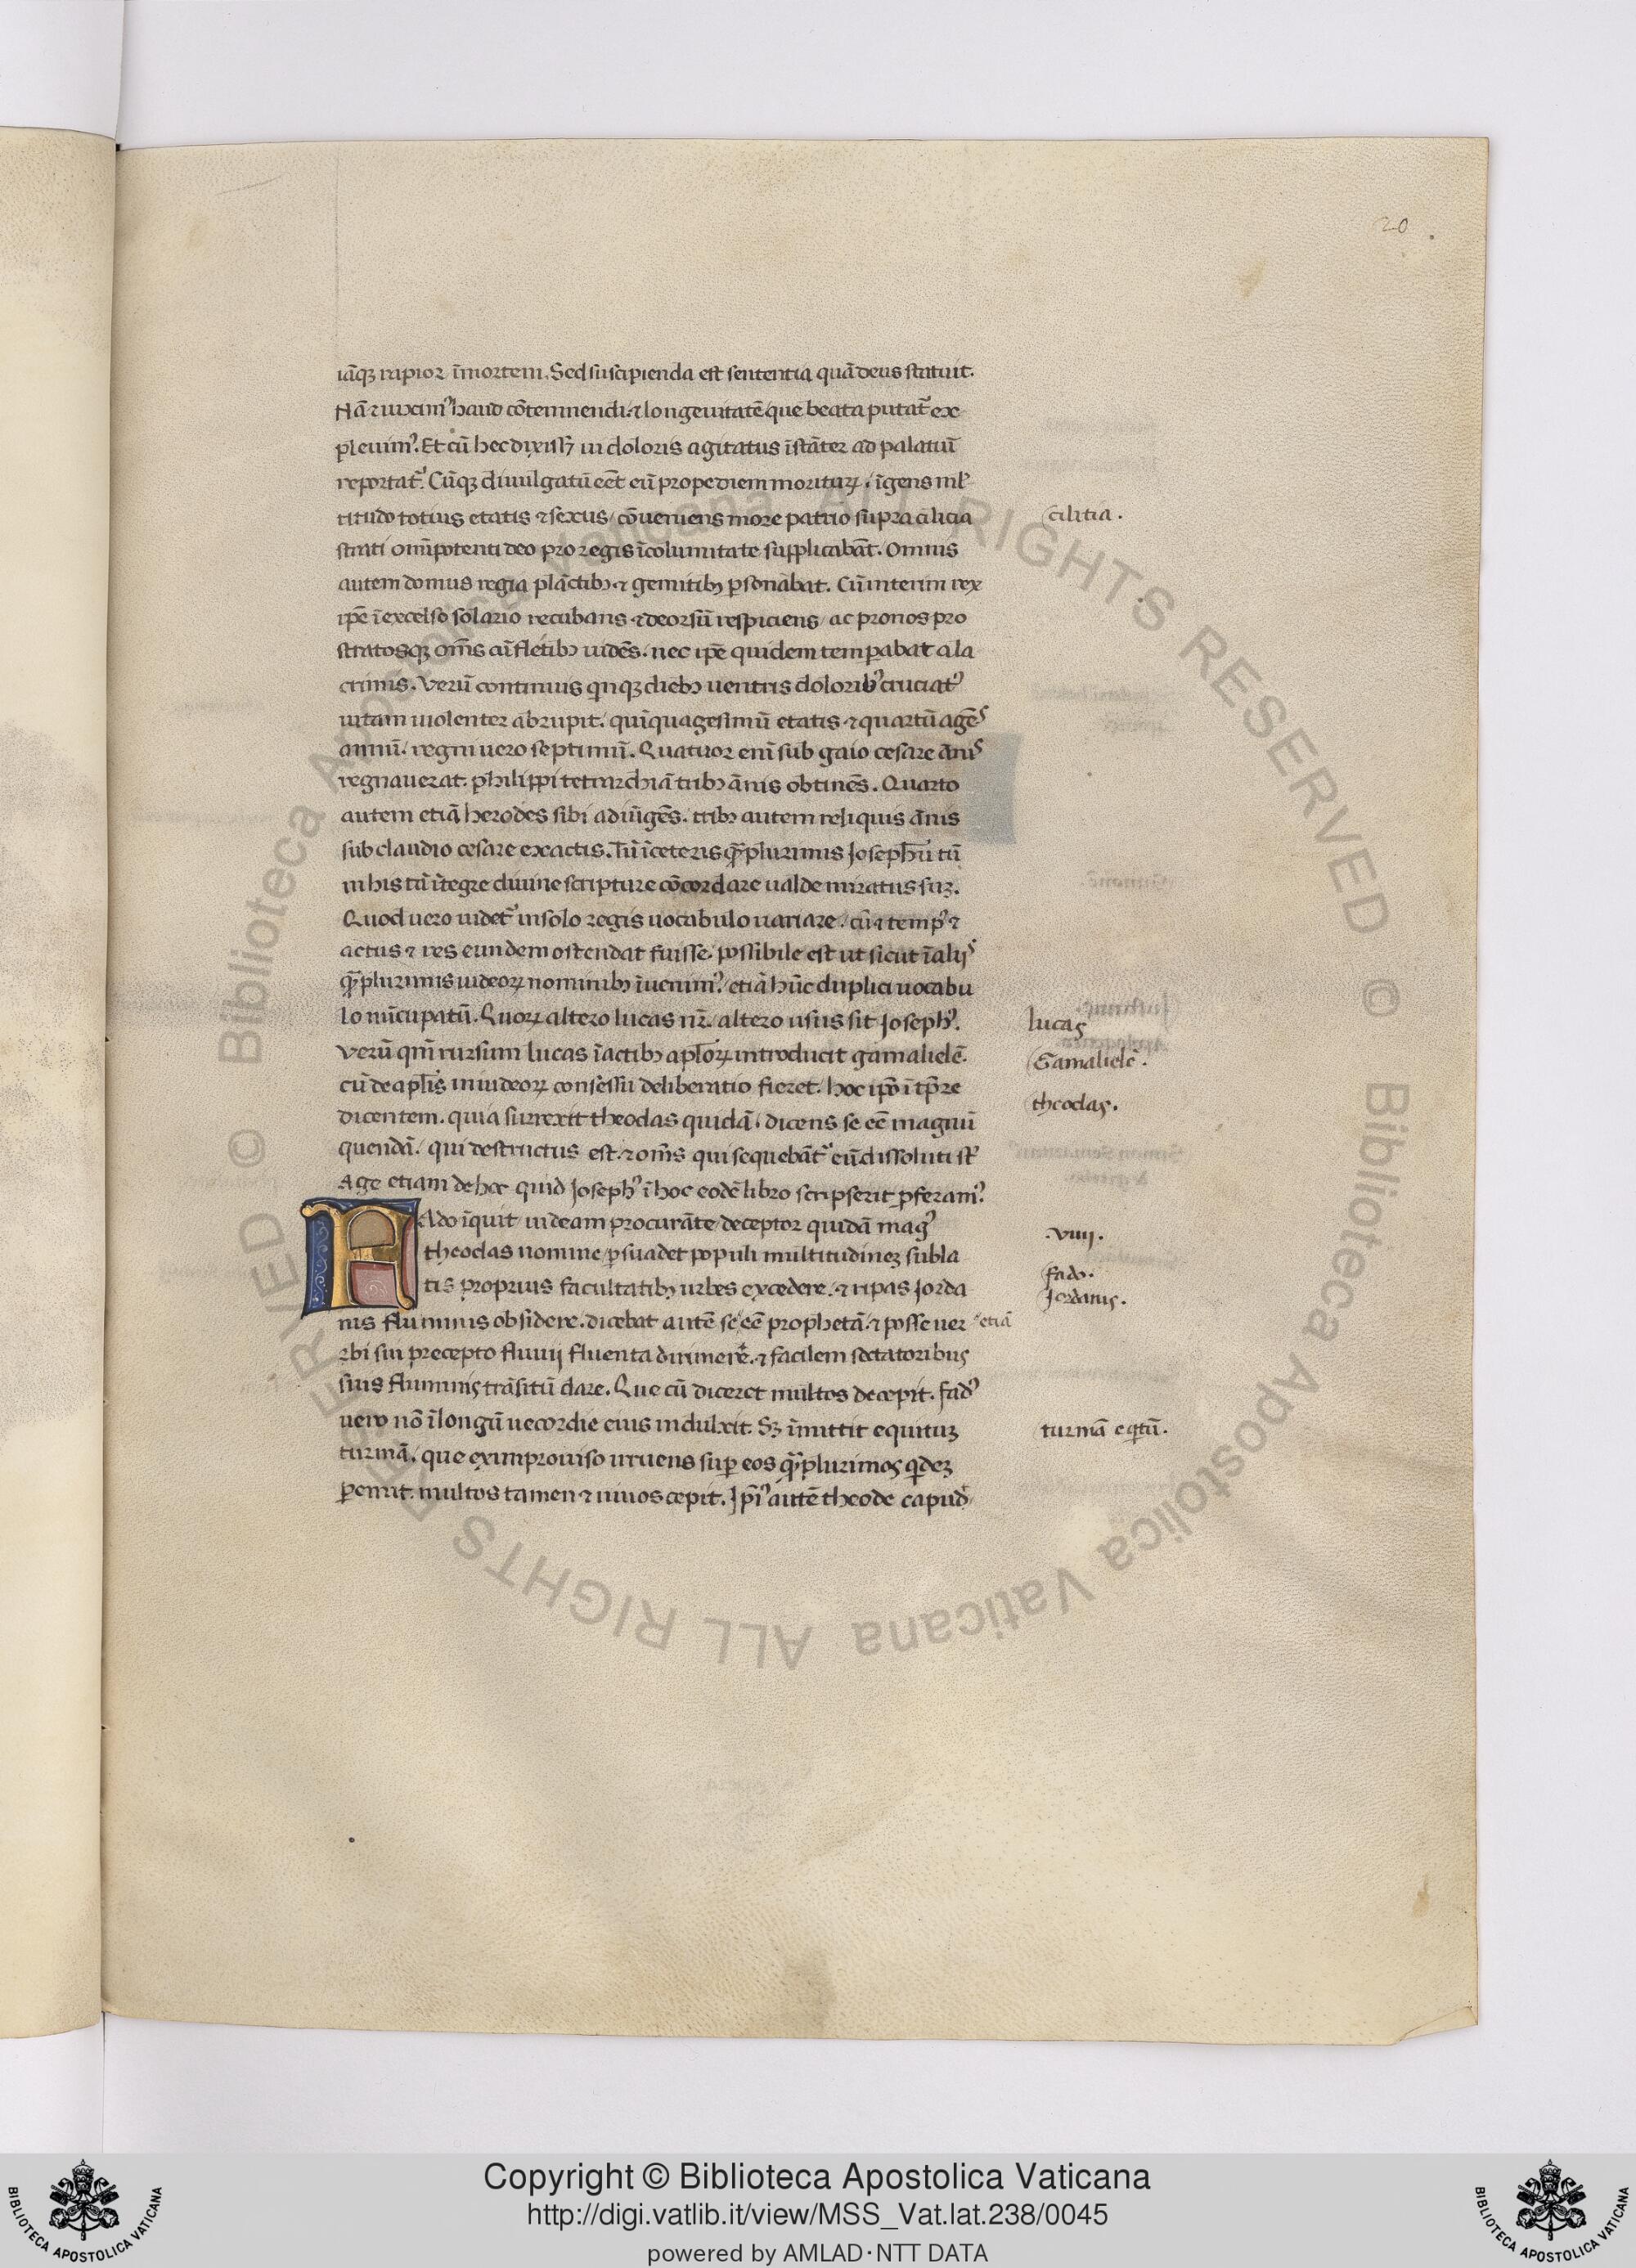 20
iāqꝫ rapior īmortem. Sed suscipienda est sententia quā deus statuit.
Nā ⁊ uiximꝰ haud cōtemnendi. ⁊ longeuitatē que beata putat᷑ ex-
pleuimꝰ. Et cū hec dixissꝫ ui doloris agitatus īstāter ad palatiū
reportat᷑. Cūqꝫ diuulgatū eēt eū propediem morituꝝ. īgens ml̄-
titudo totius etatis ⁊ sexus / cōueniens more patrio supra cilicia
strati om̄ipotenti deo pro regis īcolumitate supplicabāt. Omnis
autem domus regia plāctibꝫ ⁊ gemitibꝫ ꝑsonabat. Cū interim rex
ip̄e ī excelso solario recubans ⁊ deorsū respiciens / ac pronos pro
stratosqꝫ om̄s cū fletibꝫ uidēs. nec ip̄e quidem temꝑabat a la
crimis. Verū continuis qinqꝫ diebꝫ uentris doloribꝰ cruciatꝰ
uitam uiolenter abrupit. quīquagesimū etatis ⁊ quartū agēs
annū. regni uero septimū. Quatuor enī sub gaio cesare ānis
regnauerat. philippi tetrarchiā tribꝫ ānis obtinēs. Quarto
autem etiā herodes sibi adiūgēs. tribꝫ autem reliquis ānis
sub claudio cesare exactis. Tū ī ceteris qͣ̄plurimis Joseph̄ū tū
in his tā ītegre diuine scripture cōcordare ualde miratus suꝫ.
Quod uero uidet᷑ in solo regis uocabulo uariare. cū ⁊ tempꝰ ⁊
actus ⁊ res eundem ostendat fuisse. possibile est ut sicut ī alijs
qͣ̄plurimis iudeoꝝ nominibꝫ īuenimꝰ. etiā hūc duplici uocabu
lo nūcupatū. Quoꝝ altero lucas nr̄. altero usus sit Josephꝰ.
Verū qm̄ rursum lucas ī actibꝫ apl̄oꝝ introducit gamalielē.
cū de apl̄is in iudeoꝝ consessu deliberatio fieret. hoc ip̄o ī tp̄re
dicentem. quia surrexit theodas quidā. dicens se eē magnū
quendā. qui destructus est. ⁊ om̄s qui sequebāt᷑ eū dissoluti st̄
Age etiam de hoc quid Josephꝰ ī hoc eodē libro scripserit ꝓferamꝰ.
FAdo īquit iudeam procurāte / deceptor quidā magꝰ
theodas nomine / ꝑsuadet populi multitudineꝫ subla
tis proprijs facultatibꝫ urbes excedere. ⁊ ripas Jorda
nis fluminis obsidere. dicebat autē se eē prophetā. ⁊ posse uer etiā
rbi sui precepto fluuij fluenta dirimere. ⁊ facilem sectatoribus
suis fluminis trāsitū dare. Que cū diceret multos decepit. fadꝰ
uero nō ī longū uecordie eius indulxit. Sꝫ īmittit equituꝫ
turmā. que eximprouiso irruens suꝑ eos qͣ̄plurimos qideꝫ
ꝑemit. multos tamen ⁊ uiuos cepit. Jpīꝰ autē theode capud
cilitia.
lucas
Gamalielē.
theodas.
.viiij.
fado.
Jordanis.
turmā eqtū.
Copyright © Biblioteca Apostolica Vaticana
http://digi.vatlib.it/view/MSS_Vat.lat.238/0045
powered by AMLAD·NTT DATA
BIBLIOTECA APOSTOLICA VATICANA
BIBLIOTECA APOSTOLICA VATICANA
© Biblioteca Apostolica Vaticana ALL RIGHTS RESERVED © Biblioteca Apostolica Vaticana ALL RIGHTS RESERVED